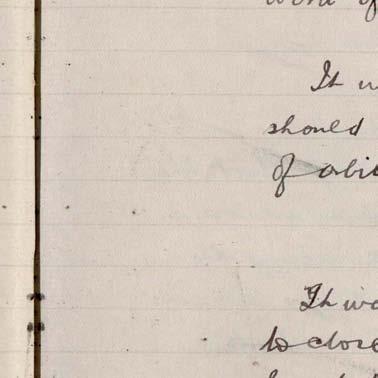 It w
should
of abi
It wa
to close